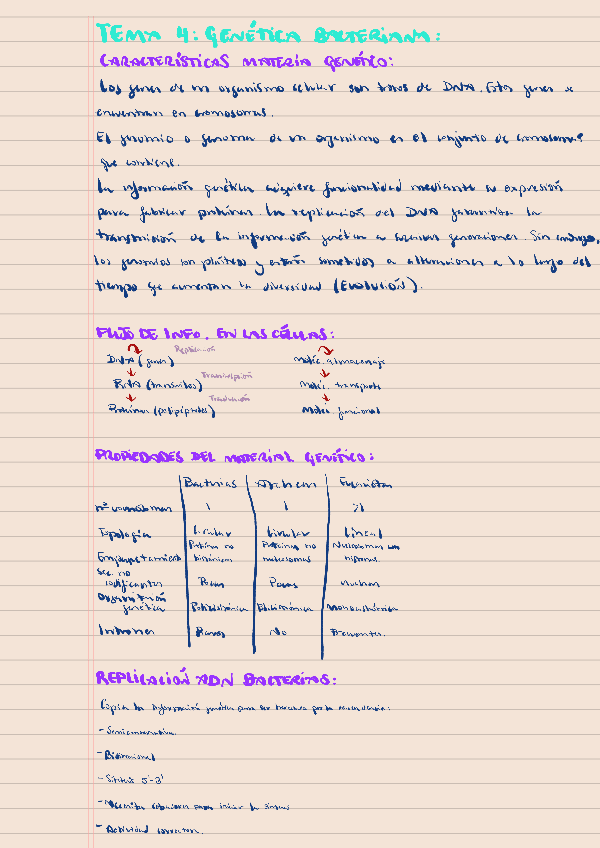 TEMA 4: GENÉTICA BACTERIANA:
CARACTERÍSTICAS MATERIA GENÉTICO:
Los genes de un organismo celular son trozos de DNA. Estos genes se
encuentran en cromosomas.
El genomio o genoma de un organismo es el conjunto de cromosomas
que contiene.
La información genética adquiere funcionalidad mediante su expresión
para fabricar proteínas. La replicación del DNA garantiza la
transmisión de la información genética a sucesivas generaciones. Sin embargo,
los genomas son plásticos y están sometidos a alteraciones a lo largo del
tiempo que aumentan la diversidad (EVOLUCIÓN).
FLUJO DE INFO. EN LAS CÉLULAS:
Replicación
DNA (genes) Moléc. almacenaje
Transcripción
RNA (transcritos) Moléc. transporte
Traducción
Proteínas (polipéptidos) Moléc. funcional
PROPIEDADES DEL MATERIAL GENÉTICO:
Bacterias Archeas Eucariotas
nº cromosomas 1 1 >1
Topología Circular Circular Lineal
Empaquetamiento Proteínas no histónicas Proteínas no nucleosomas Nucleosomas con histonas
Sec. no codificantes Pocas Pocas Muchas
Organización genética Policistrónica Policistrónica Monocistrónica
Intrones Raros No Frecuentes
REPLICACIÓN ADN BACTERIAS:
Copia la información genética para ser
- Semiconservativa
- Bidireccional
- Síntesis 5'-3'
- Necesita cebadores para iniciar la síntesis
- Actividad correctora.